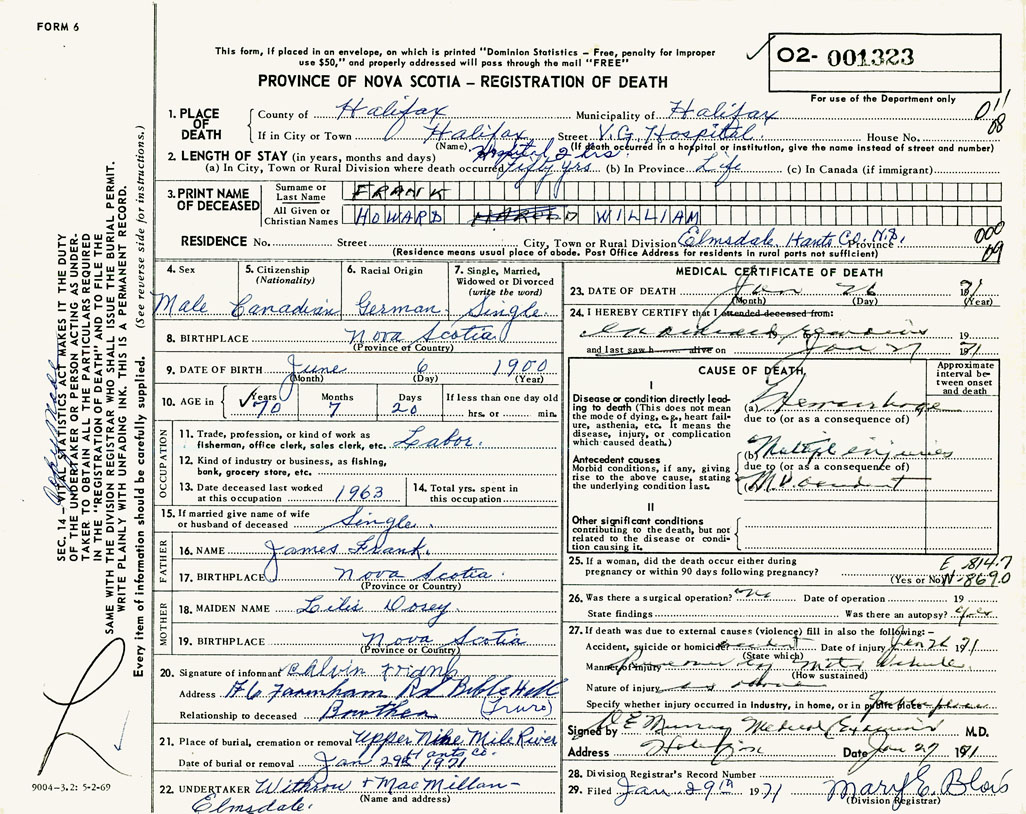 FORM 6
This form, if placed in an envelope, on which is printed "Dominion Statistics – Free, penalty for improper
use $50," and properly addressed will pass through the mail "FREE"
O2- 001323
PROVINCE OF NOVA SCOTIA – REGISTRATION OF DEATH
For use of the Department only
1. PLACE OF DEATH
County of Halifax Municipality of Halifax
If in City or Town Halifax Street V.G. Hospital House No.
(Name) (If death occurred in a hospital or institution, give the name instead of street and number)
2. LENGTH OF STAY (in years, months and days) Hospital 2 hrs.
(a) In City, Town or Rural Division where death occurred Fifty yrs (b) In Province Life (c) In Canada (if immigrant)
3. PRINT NAME OF DECEASED
Surname or Last Name FRANK
All Given or Christian Names HOWARD HAROLD WILLIAM
RESIDENCE No. Street City, Town or Rural Division Elmsdale Hants Co. N.S. Province
000
09
(Residence means usual place of abode. Post Office Address for residents in rural parts not sufficient)
4. Sex 5. Citizenship (Nationality) 6. Racial Origin 7. Single, Married, Widowed or Divorced (write the word)
Male Canadian German Single
8. BIRTHPLACE Nova Scotia
(Province of Country)
9. DATE OF BIRTH June 6 1900
(Month) (Day) (Year)
10. AGE in Years Months Days If less than one day old
70 7 20 hrs. or min.
OCCUPATION
11. Trade, profession, or kind of work as
fisherman, office clerk, sales clerk, etc. Labor.
12. Kind of industry or business, as fishing,
bank, grocery store, etc.
13. Date deceased last worked
at this occupation 1963
14. Total yrs. spent in
this occupation
15. If married give name of wife
or husband of deceased Single
FATHER
16. NAME James Frank.
17. BIRTHPLACE Nova Scotia
(Province or Country)
MOTHER
18. MAIDEN NAME Lilis Dosey
19. BIRTHPLACE Nova Scotia
(Province or Country)
20. Signature of informant Calvin Frank
Address 76 Farnham Rd Bible Hill
(Truro)
Relationship to deceased Brother
21. Place of burial, cremation or removal Upper Nine Mile River
Hants Co.
Date of burial or removal Jan 29th 1971
22. UNDERTAKER Withrow + MacMillan–
(Name and address)
Elmsdale.
MEDICAL CERTIFICATE OF DEATH
23. DATE OF DEATH Jan 26 1971
(Month) (Day) (Year)
24. I HEREBY CERTIFY that I attended deceased from:
19
and last saw h alive on Jan 27 1971
CAUSE OF DEATH
Approximate interval between onset and death
I
Disease or condition directly leading to death (This does not mean the mode of dying, e.g., heart failure, asthenia, etc. It means the disease, injury, or complication which caused death.)
(a) Hemorrhage
due to (or as a consequence of)
Antecedent causes
Morbid conditions, if any, giving rise to the above cause, stating the underlying condition last.
(b) Multiple injuries
due to (or as a consequence of)
M.V. accident
II
Other significant conditions
contributing to the death, but not related to the disease or condition causing it.
25. If a woman, did the death occur either during
pregnancy or within 90 days following pregnancy? (Yes or No)
E 814.7
N-869.0
26. Was there a surgical operation? no Date of operation 19
State findings Was there an autopsy? Yes
27. If death was due to external causes (violence) fill in also the following:–
Accident, suicide or homicide accident Date of injury Jan 26 1971
(State which)
Manner of injury
(How sustained)
Nature of injury as above
Specify whether injury occurred in Industry, in home, or in public place
Signed by Medical Examiner M.D.
Address Halifax Date Jan 27 1971
28. Division Registrar's Record Number
29. Filed Jan 29th 1971 Mary E. Blois
(Division Registrar)
SEC. 14 – VITAL STATISTICS ACT MAKES IT THE DUTY
OF THE UNDERTAKER OR PERSON ACTING AS UNDER-
TAKER TO OBTAIN ALL THE PARTICULARS REQUIRED
IN THE "REGISTRATION OF DEATH" AND TO FILE THE
SAME WITH THE DIVISION REGISTRAR WHO SHALL ISSUE THE BURIAL PERMIT.
WRITE PLAINLY WITH UNFADING INK. THIS IS A PERMANENT RECORD.
Every item of information should be carefully supplied. (See reverse side for instructions.)
9004-3.2: 5-2-69